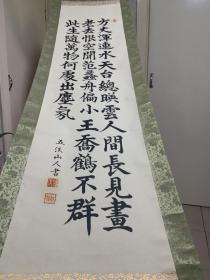 方丈渾連水天台總暎雲人間長見畫
老去恨空聞范蠡舟偏小王喬鶴不群
此生隨萬物何處出塵氛
五溪山人書